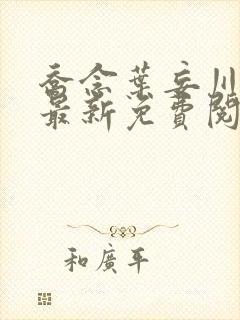 喬念葉妄川
最新免費閱
和廣平